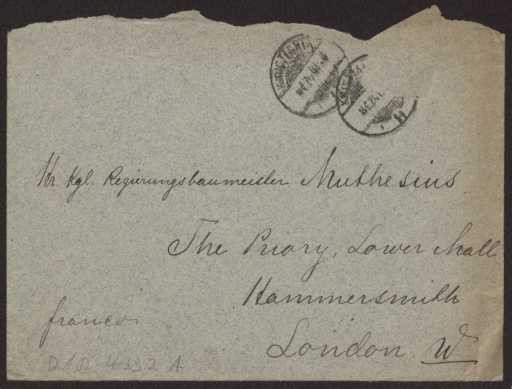 Hr. Kgl. Regierungsbaumeister Muthesius
The Priory, Lower Mall
Hammersmith
London W
franco